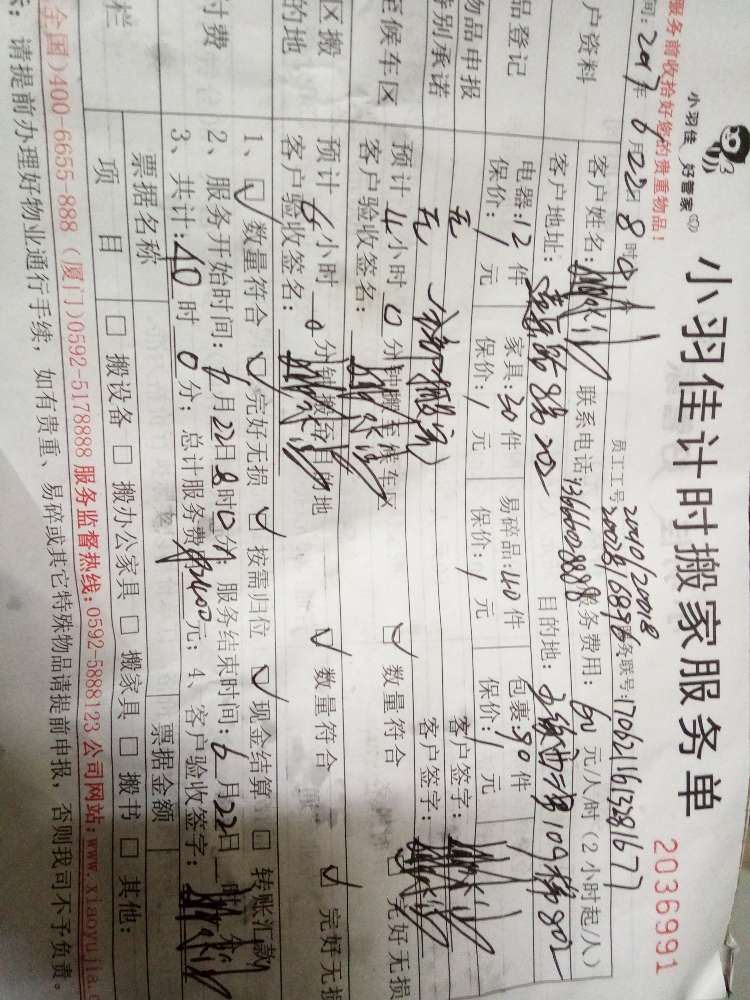 小羽佳 好管家
小羽佳计时搬家服务单
2036991
服务前收拾好您的贵重物品!
员工工号: 2040/20018
间: 2017年6月22日8时0
务联号: 170621613281677
户资料
客户姓名:
联系电话: 13666028888
服务费用: 60元/人/时(2小时起/人)
客户地址:
目的地:
品登记
电器: 12件
家具: 30件
易碎品: 40件
包裹: 90件
保价: / 元
保价: / 元
保价: / 元
保价: / 元
物品申报
无
客户签字:
特别承诺
无
客户签字:
至候车区
预计4小时0分钟搬至候车区
数量符合
完好无损
客户验收签名:
区搬
的地
预计6小时0分钟搬
地
数量符合
完好无损
客户验收签名:
付费
1、 数量符合 完好无损 按需归位 现金结算 转账汇款
2、服务开始时间: 6月22日8时0分; 服务结束时间: 6月22日
3、共计: 40时0分; 总计服务费 2400元; 4、客户验收签字:
栏
票据名称
票据金额
项 目
搬设备 搬办公家具 搬家具 搬书 其他:
全国)400-6655-888 (厦门)0592-5178888 服务监督热线:0592-5888123 公司网站:www.xiaoyujia.c
示: 请提前办理好物业通行手续, 如有贵重、易碎或其它特殊物品请提前申报, 否则我司不予负责。